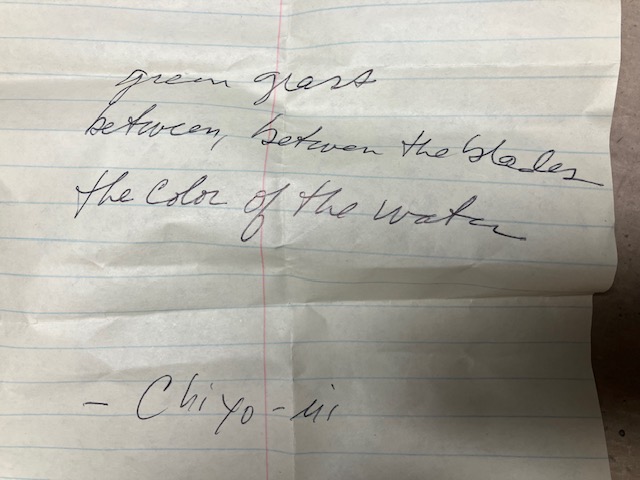 green grass
between, between the blades
the color of the water
- Chiyo-ni